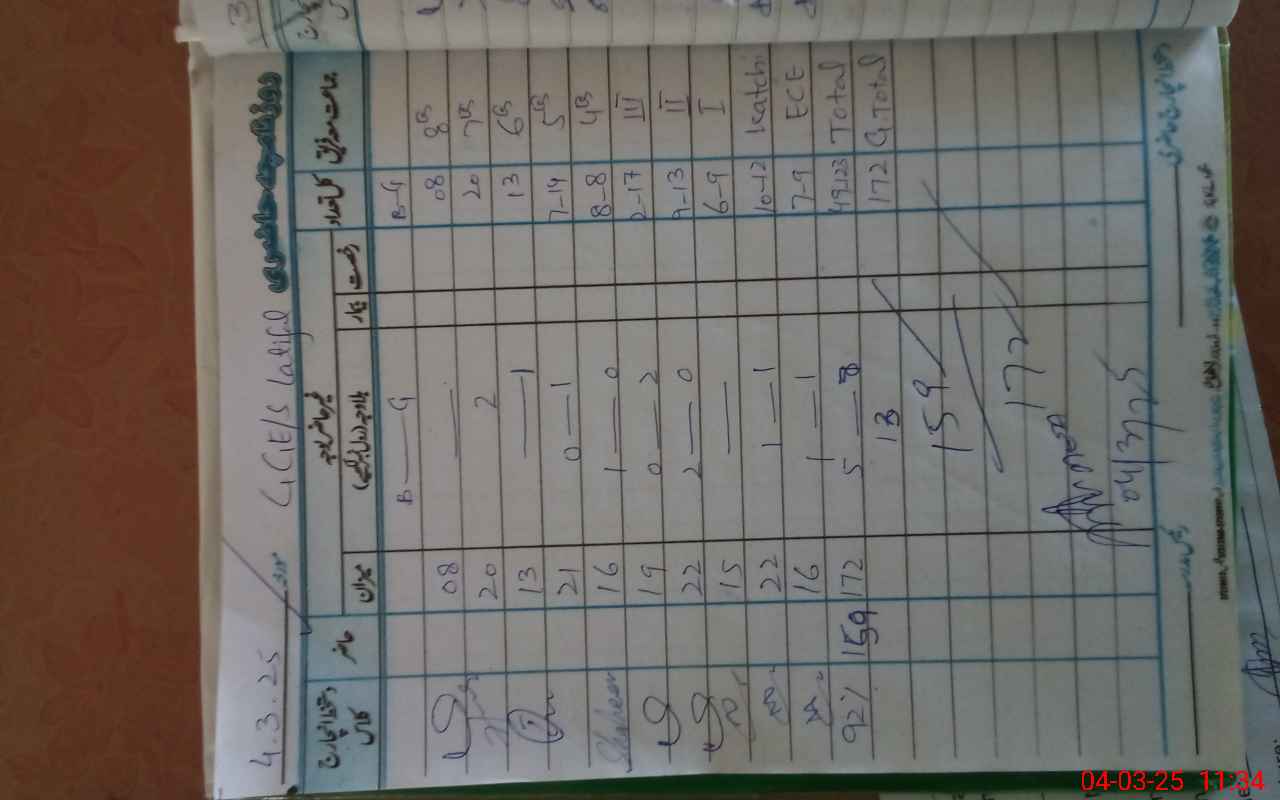 4.3.25 GGE/S Latifal روزنامچہ حاضری
دستخط انچارج کلاس حاضر میزان غیر حاضر طلبہ بیمار رخصت کل تعداد جماعت معہ فریق
B — G B-G
08 — 08 8th
20 2 20 7th
13 — 1 13 6th
21 0 — 1 7-14 5th
Shaheen 16 1 — 0 8-8 4th
19 0 — 2 2-17 III
22 2 — 0 9-13 II
15 — 6-9 I
22 1 — 1 10-12 Katchi
16 1 — 1 7-9 ECE
92% 159 172 5 — 8 49-123 Total
13 172 G.Total
159
172
04/3/25
04-03-25 11:34